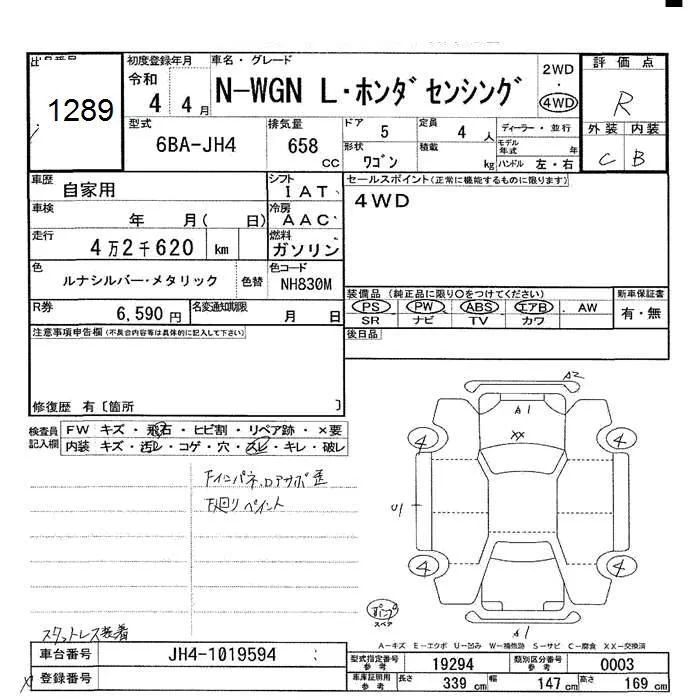 出品番号 初度登録年月 車名・グレード 評価点
1289
令和 4 4月
N-WGN L・ホンダセンシング
2WD
・
4WD
R
外装 内装
C B
型式 排気量 ドア 定員 ディーラー・並行
6BA-JH4 658 cc 5 4 人
形状 積載 モデル年式 年
ワゴン kg ハンドル 左・右
車歴 自家用 シフト IAT
セールスポイント(正常に機能するものに限ります)
4WD
車検 年 月( 日) 冷房 AAC
走行 4万2千620 km 燃料 ガソリン
色 ルナシルバー・メタリック 色替 色コード NH830M
装備品 (純正品に限り○をつけてください) 新車保証書
PS PW ABS エアB . AW 有・無
SR ナビ TV カワ
R券 6,590 円 名変通知期限 月 日
注意事項申告欄(不具合内容等は具体的に記入して下さい) 後日品
修復歴 有〔箇所 〕
検査員記入欄
FW キズ・飛石・ヒビ割・リペア跡・×要
内装 キズ・汚レ・コゲ・穴・スレ・キレ・破レ
A2
A1
XX
4 4
下インパネ、ロアサポ歪
下廻りペイント
U1
4 4
スペア
A1
スタットレス装着
A-キズ E-エクボ U-凹み W-補修跡 S-サビ C-腐食 XX-交換済
車台番号 JH4-1019594
型式指定番号参考 19294 類別区分番号参考 0003
登録番号
車庫証明用参考 長さ 339 cm 幅 147 cm 高さ 169 cm